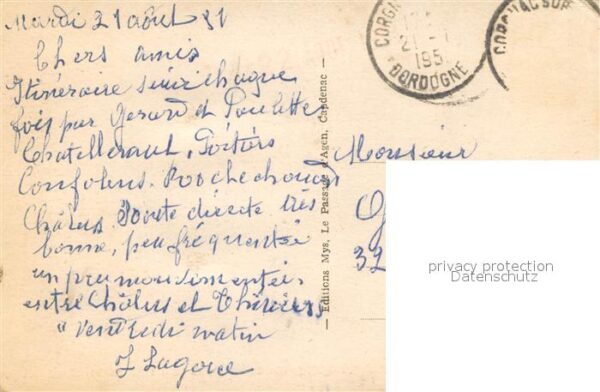 Mardi 21 août 51
Chers amis
Itinéraire suivi chaque
fois par Gerard et Paulette
Chatellerault, Poitiers
Confolens. Rochechouart
Châlus. Route directe très
bonne, peu fréquentée
un peu mouvementée
entre Châlus et Thiviers
"Vendredi matin
J Lagorce
— Editions Mys, Le Passage d'Agen, Capdenac —
Monsieur
G
32
CORGNAC
21 -
195
DORDOGNE
CORGNAC SUR
privacy protection
Datenschutz